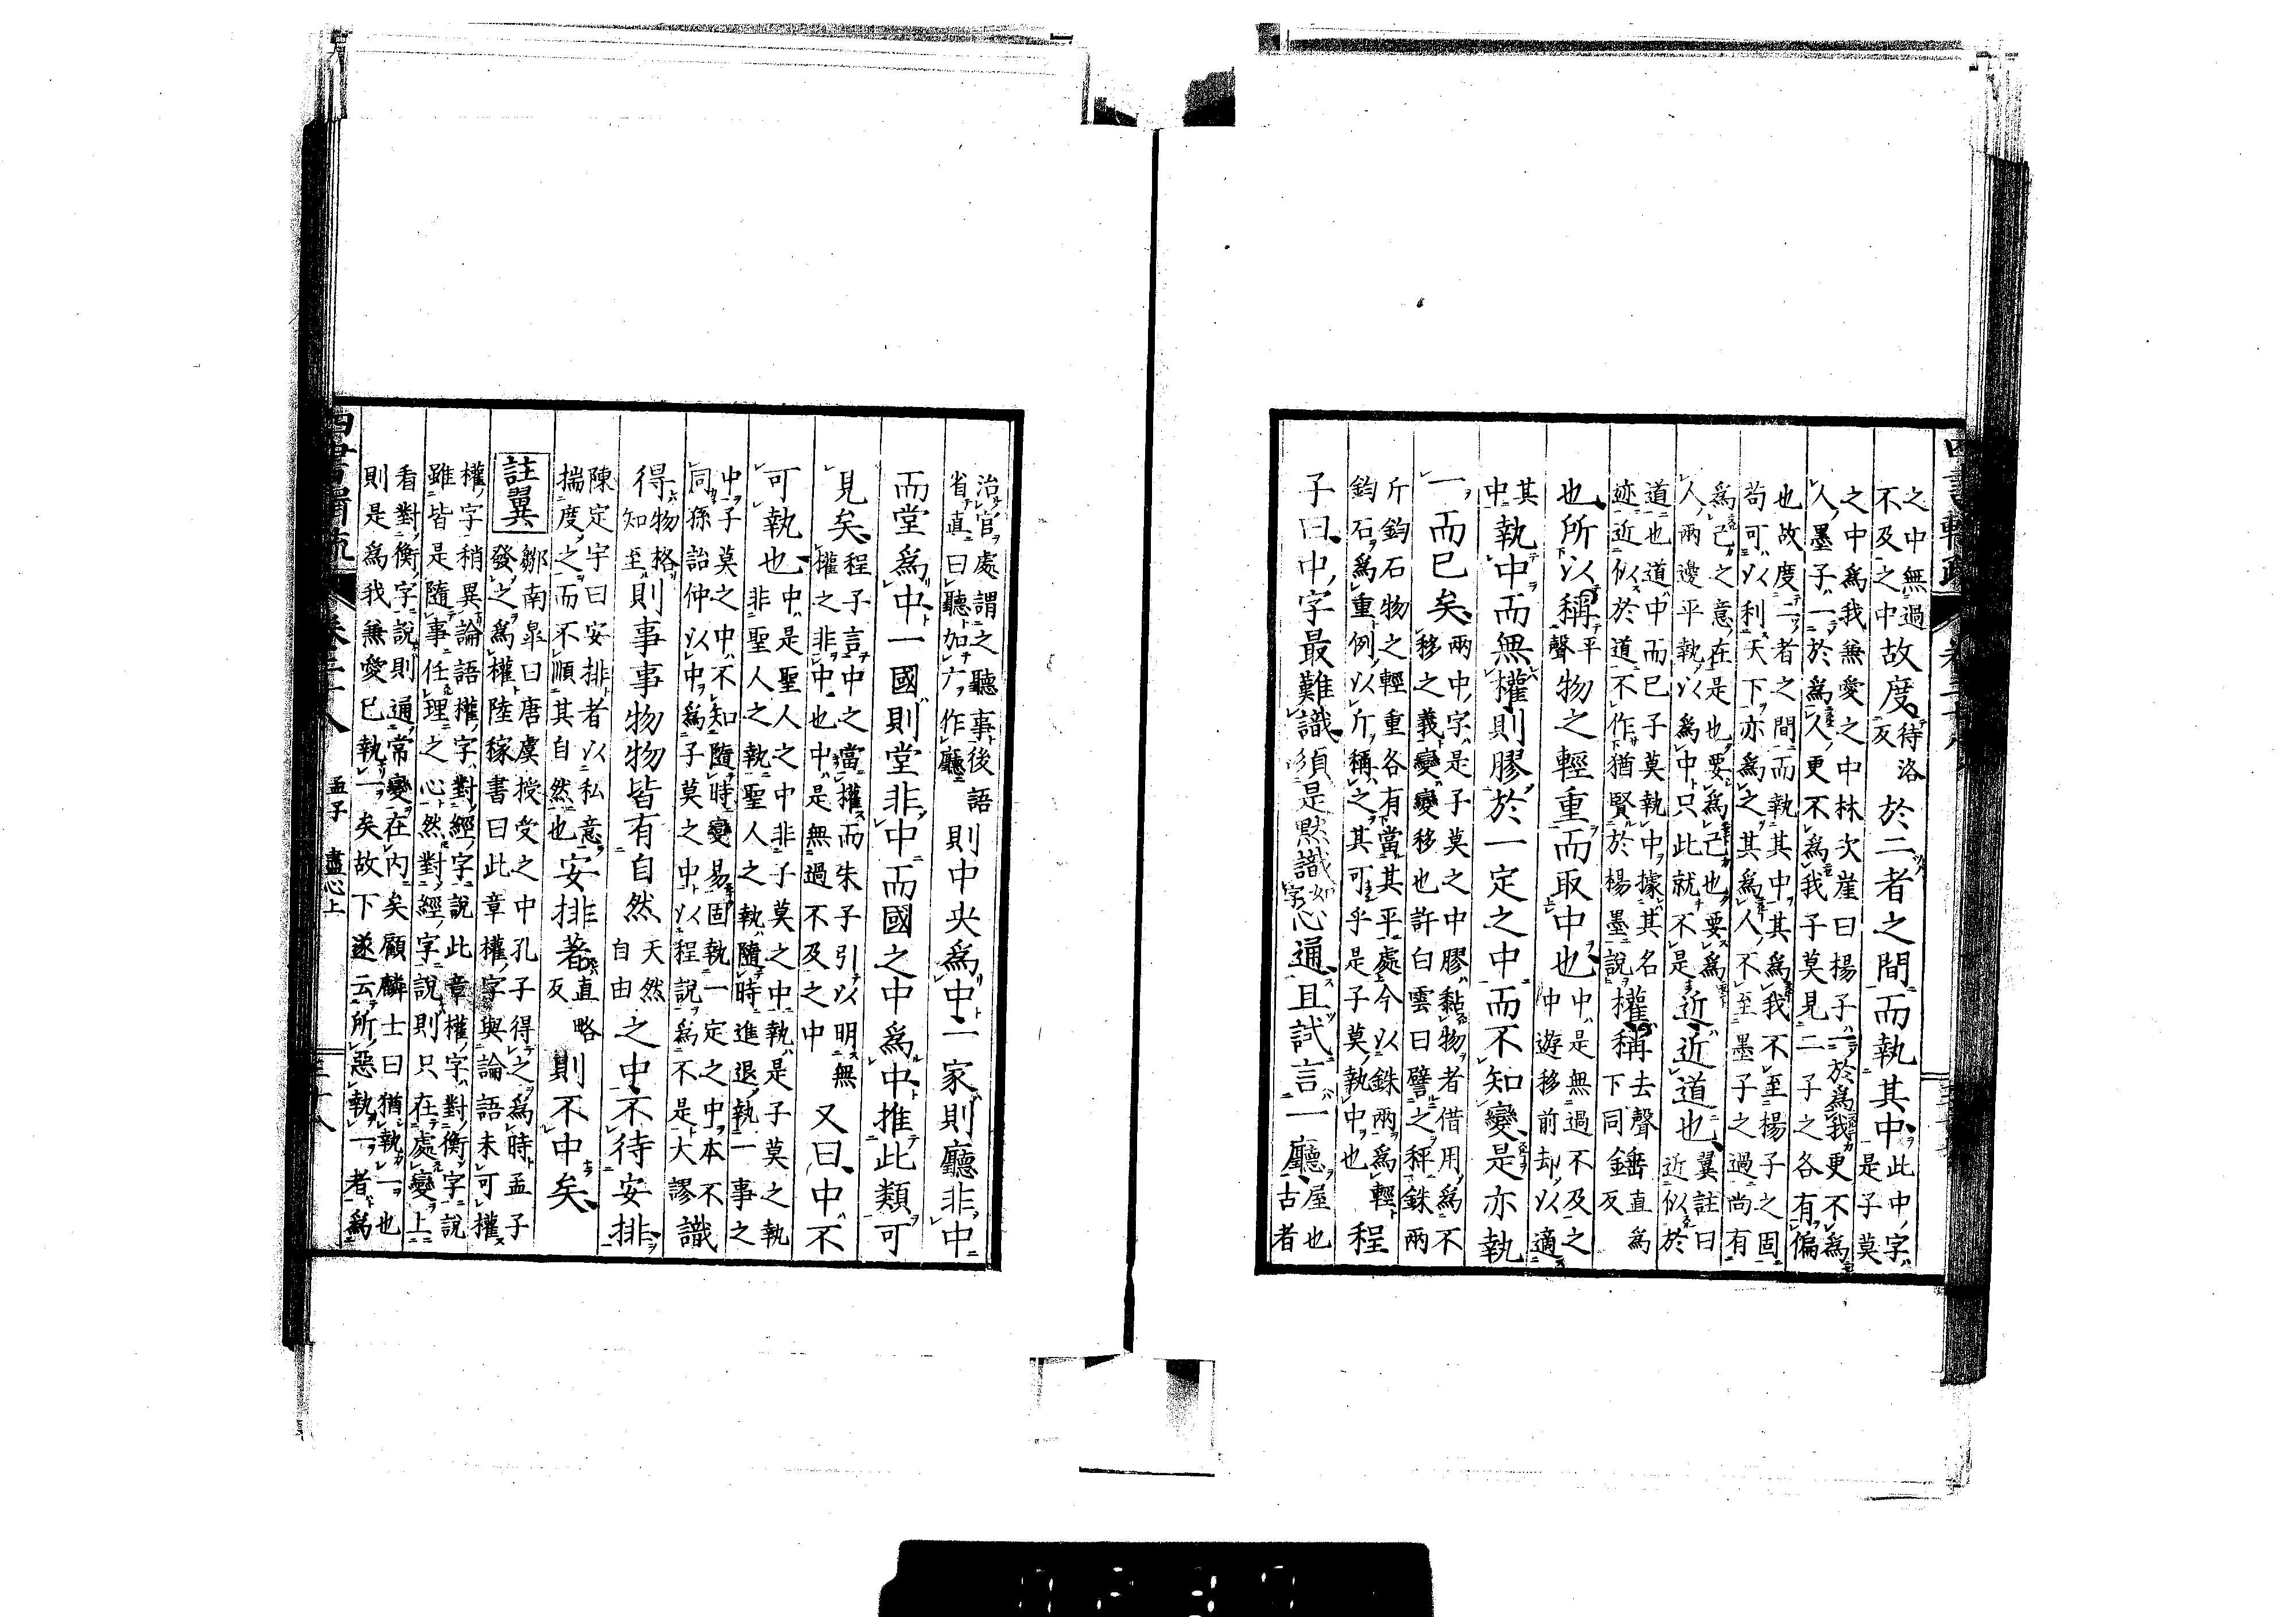 之中無過不及之中故度待洛反於二者之間而執其中此中字是子莫
之中爲我兼愛之中林次崖曰楊子一於爲我更不爲人墨子一於爲人更不爲我子莫見二子之各有偏
也故度二者之間而執其中其爲我不至楊子之固苟可以利天下亦爲之其爲人不至墨子之過尚有
爲己之意在是也要爲己也要爲人兩邊平執以爲中只此就不是近近道也翼註曰近似於
道也道中而已子莫執中據其名迹近似於道不作猶賢於楊墨說權稱去聲下同錘直爲反
也所以稱平聲物之輕重而取中也中是無過不及之中遊移前却以適
其中執中而無權則膠於一定之中而不知變是亦執
一而已矣兩中字是子莫之中膠黏物者借用爲不移之義變變移也許白雲曰譬之秤銖兩
斤鈞石物之輕重各有當其平處今以銖兩爲輕鈞石爲重例以斤稱之其可乎是子莫執中也程
子曰中字最難識須是默識如字心通且試言一廳屋也古者
治官處謂之聽事後語省直曰聽加广作廳則中央爲中一家則廳非中
而堂爲中一國則堂非中而國之中爲中推此類可
見矣程子言中之當權而朱子引以明無權之非中也中是無過不及之中又曰中不
可執也中是聖人之中非子莫之中執是子莫之執非聖人之執聖人之執隨時進退執一事之
中子莫之中不知隨時變易固執一定之中本不同孫詒仲以中爲子莫之中以程說爲不是大謬識
得物格知至則事事物物皆有自然天然自由之中不待安排
陳定宇曰安排者以私意揣度之而不順其自然也安排著直略反則不中矣
註翼鄒南皐曰唐虞授受之中孔子得之爲時孟子發之爲權陸稼書曰此章權字與論語未可權
權字稍異論語權字對經字說此章權字對衡字說雖皆是隨事任理之心然對經字說則只在處變上
看對衡字說則通常變在內矣顧麟士曰猶執一也則是爲我兼愛已執一矣故下遂云所惡執一者爲
孟子 盡心上